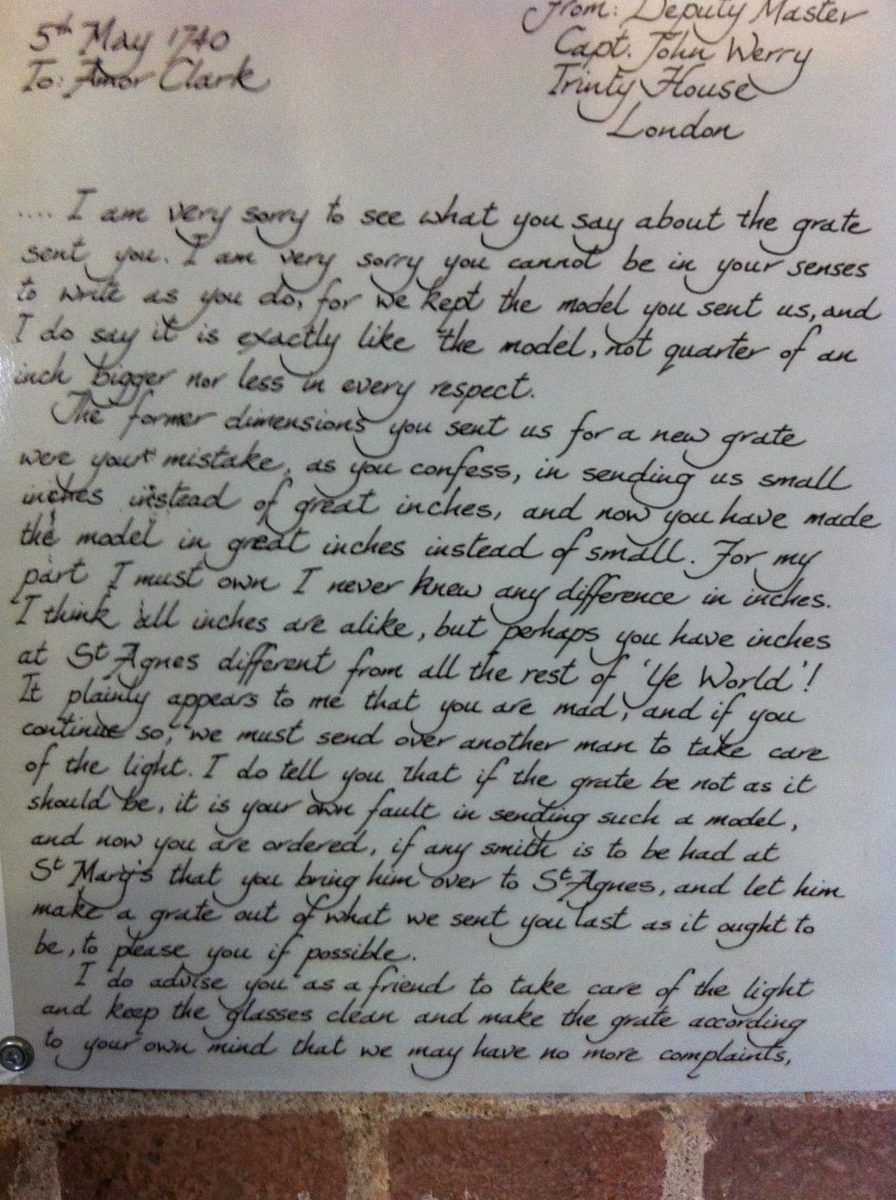 From: Deputy Master
5th May 1740
Capt. John Werry
To: Amor Clark
Trinty House
London
.... I am very sorry to see what you say about the grate
sent you. I am very sorry you cannot be in your senses
to write as you do, for we kept the model you sent us, and
I do say it is exactly like the model, not quarter of an
inch bigger nor less in every respect.
The former dimensions you sent us for a new grate
were your mistake, as you confess, in sending us small
inches instead of great inches, and now you have made
the model in great inches instead of small. For my
part I must own I never knew any difference in inches.
I think all inches are alike, but perhaps you have inches
at St Agnes different from all the rest of 'Ye World'!
It plainly appears to me that you are mad, and if you
continue so, we must send over another man to take care
of the light. I do tell you that if the grate be not as it
should be, it is your own fault in sending such a model,
and now you are ordered, if any smith is to be had at
St Mary's that you bring him over to St Agnes, and let him
make a grate out of what we sent you last as it ought to
be, to please you if possible.
I do advise you as a friend to take care of the light
and keep the glasses clean and make the grate according
to your own mind that we may have no more complaints,